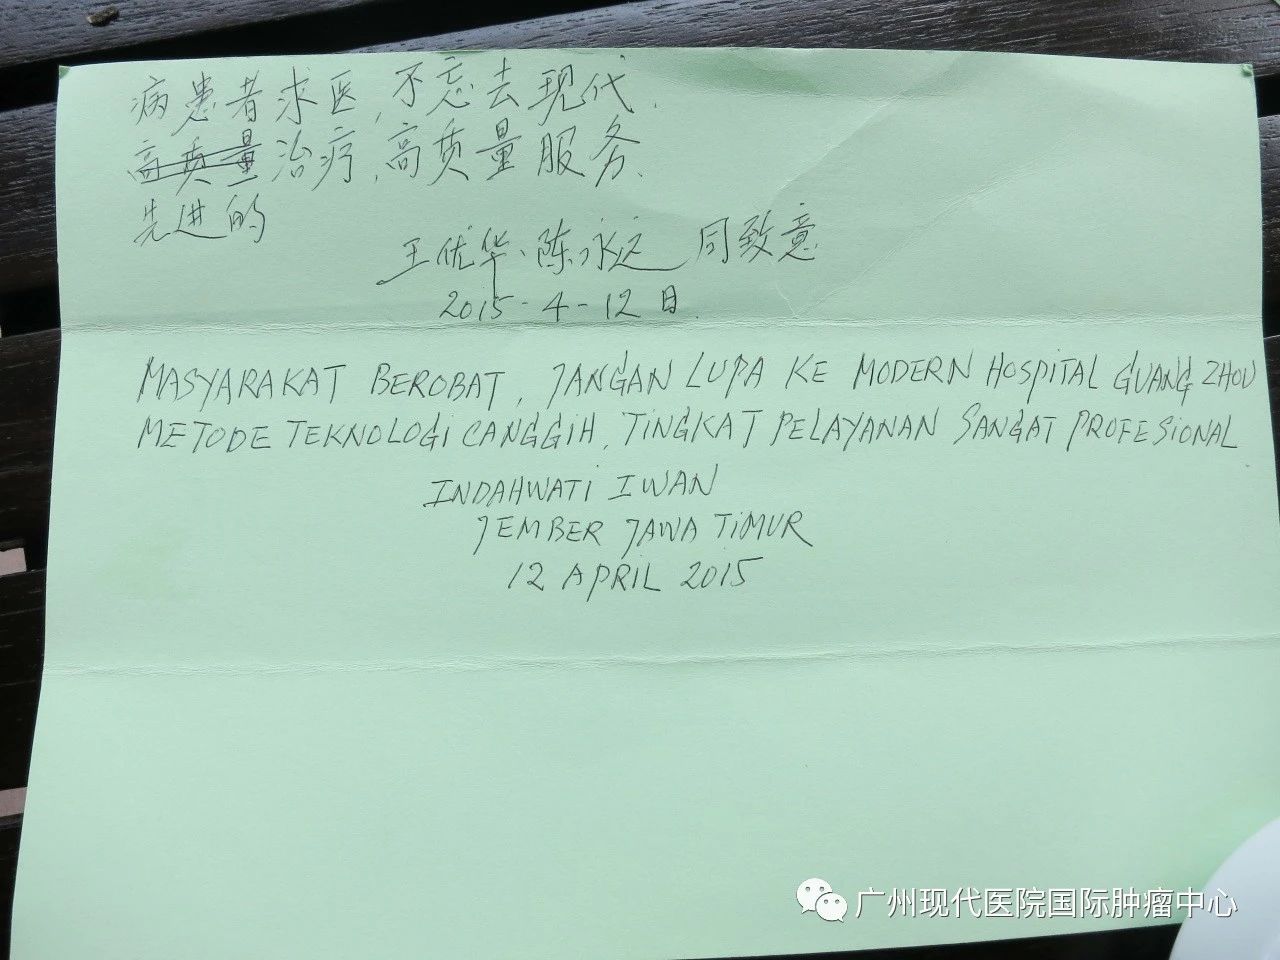 病患者求医,不忘去现代.
高质量治疗,高质量服务.
先进的
王优华、陈永远 同致意
2015-4-12日.
MASYARAKAT BEROBAT, JANGAN LUPA KE MODERN HOSPITAL GUANG ZHOU
METODE TEKNOLOGI CANGGIH, TINGKAT PELAYANAN SANGAT PROFESIONAL
INDAHWATI IWAN
JEMBER JAWA TIMUR
12 APRIL 2015
广州现代医院国际肿瘤中心